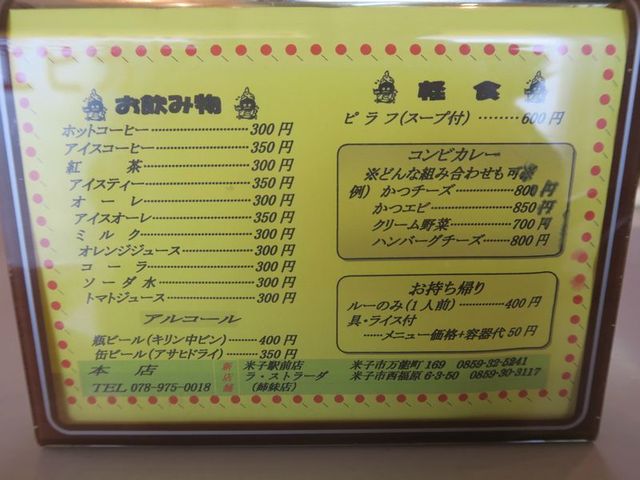 お飲み物
ホットコーヒー………………300円
アイスコーヒー………………350円
紅　　茶………………300円
アイスティー………………350円
オ ー レ………………300円
アイスオーレ………………350円
ミ ル ク………………300円
オレンジジュース…………300円
コ ー ラ………………300円
ソ ー ダ 水………………300円
トマトジュース………………300円
アルコール
瓶ビール(キリン中ビン)………400円
缶ビール(アサヒドライ)………350円
軽 食
ピ ラ フ(スープ付)………600円
コンビカレー
※どんな組み合わせも可※
例) かつチーズ………800円
かつエビ………850円
クリーム野菜………700円
ハンバーグチーズ………800円
お持ち帰り
ルーのみ(1人前)………400円
具・ライス付
……メニュー価格+容器代50円
本　店
TEL 078-975-0018
新店舗
米子駅前店 米子市万能町169 0859-32-5241
ラ・ストラーダ 米子市西福原6-3-50 0859-30-3117
(姉妹店)